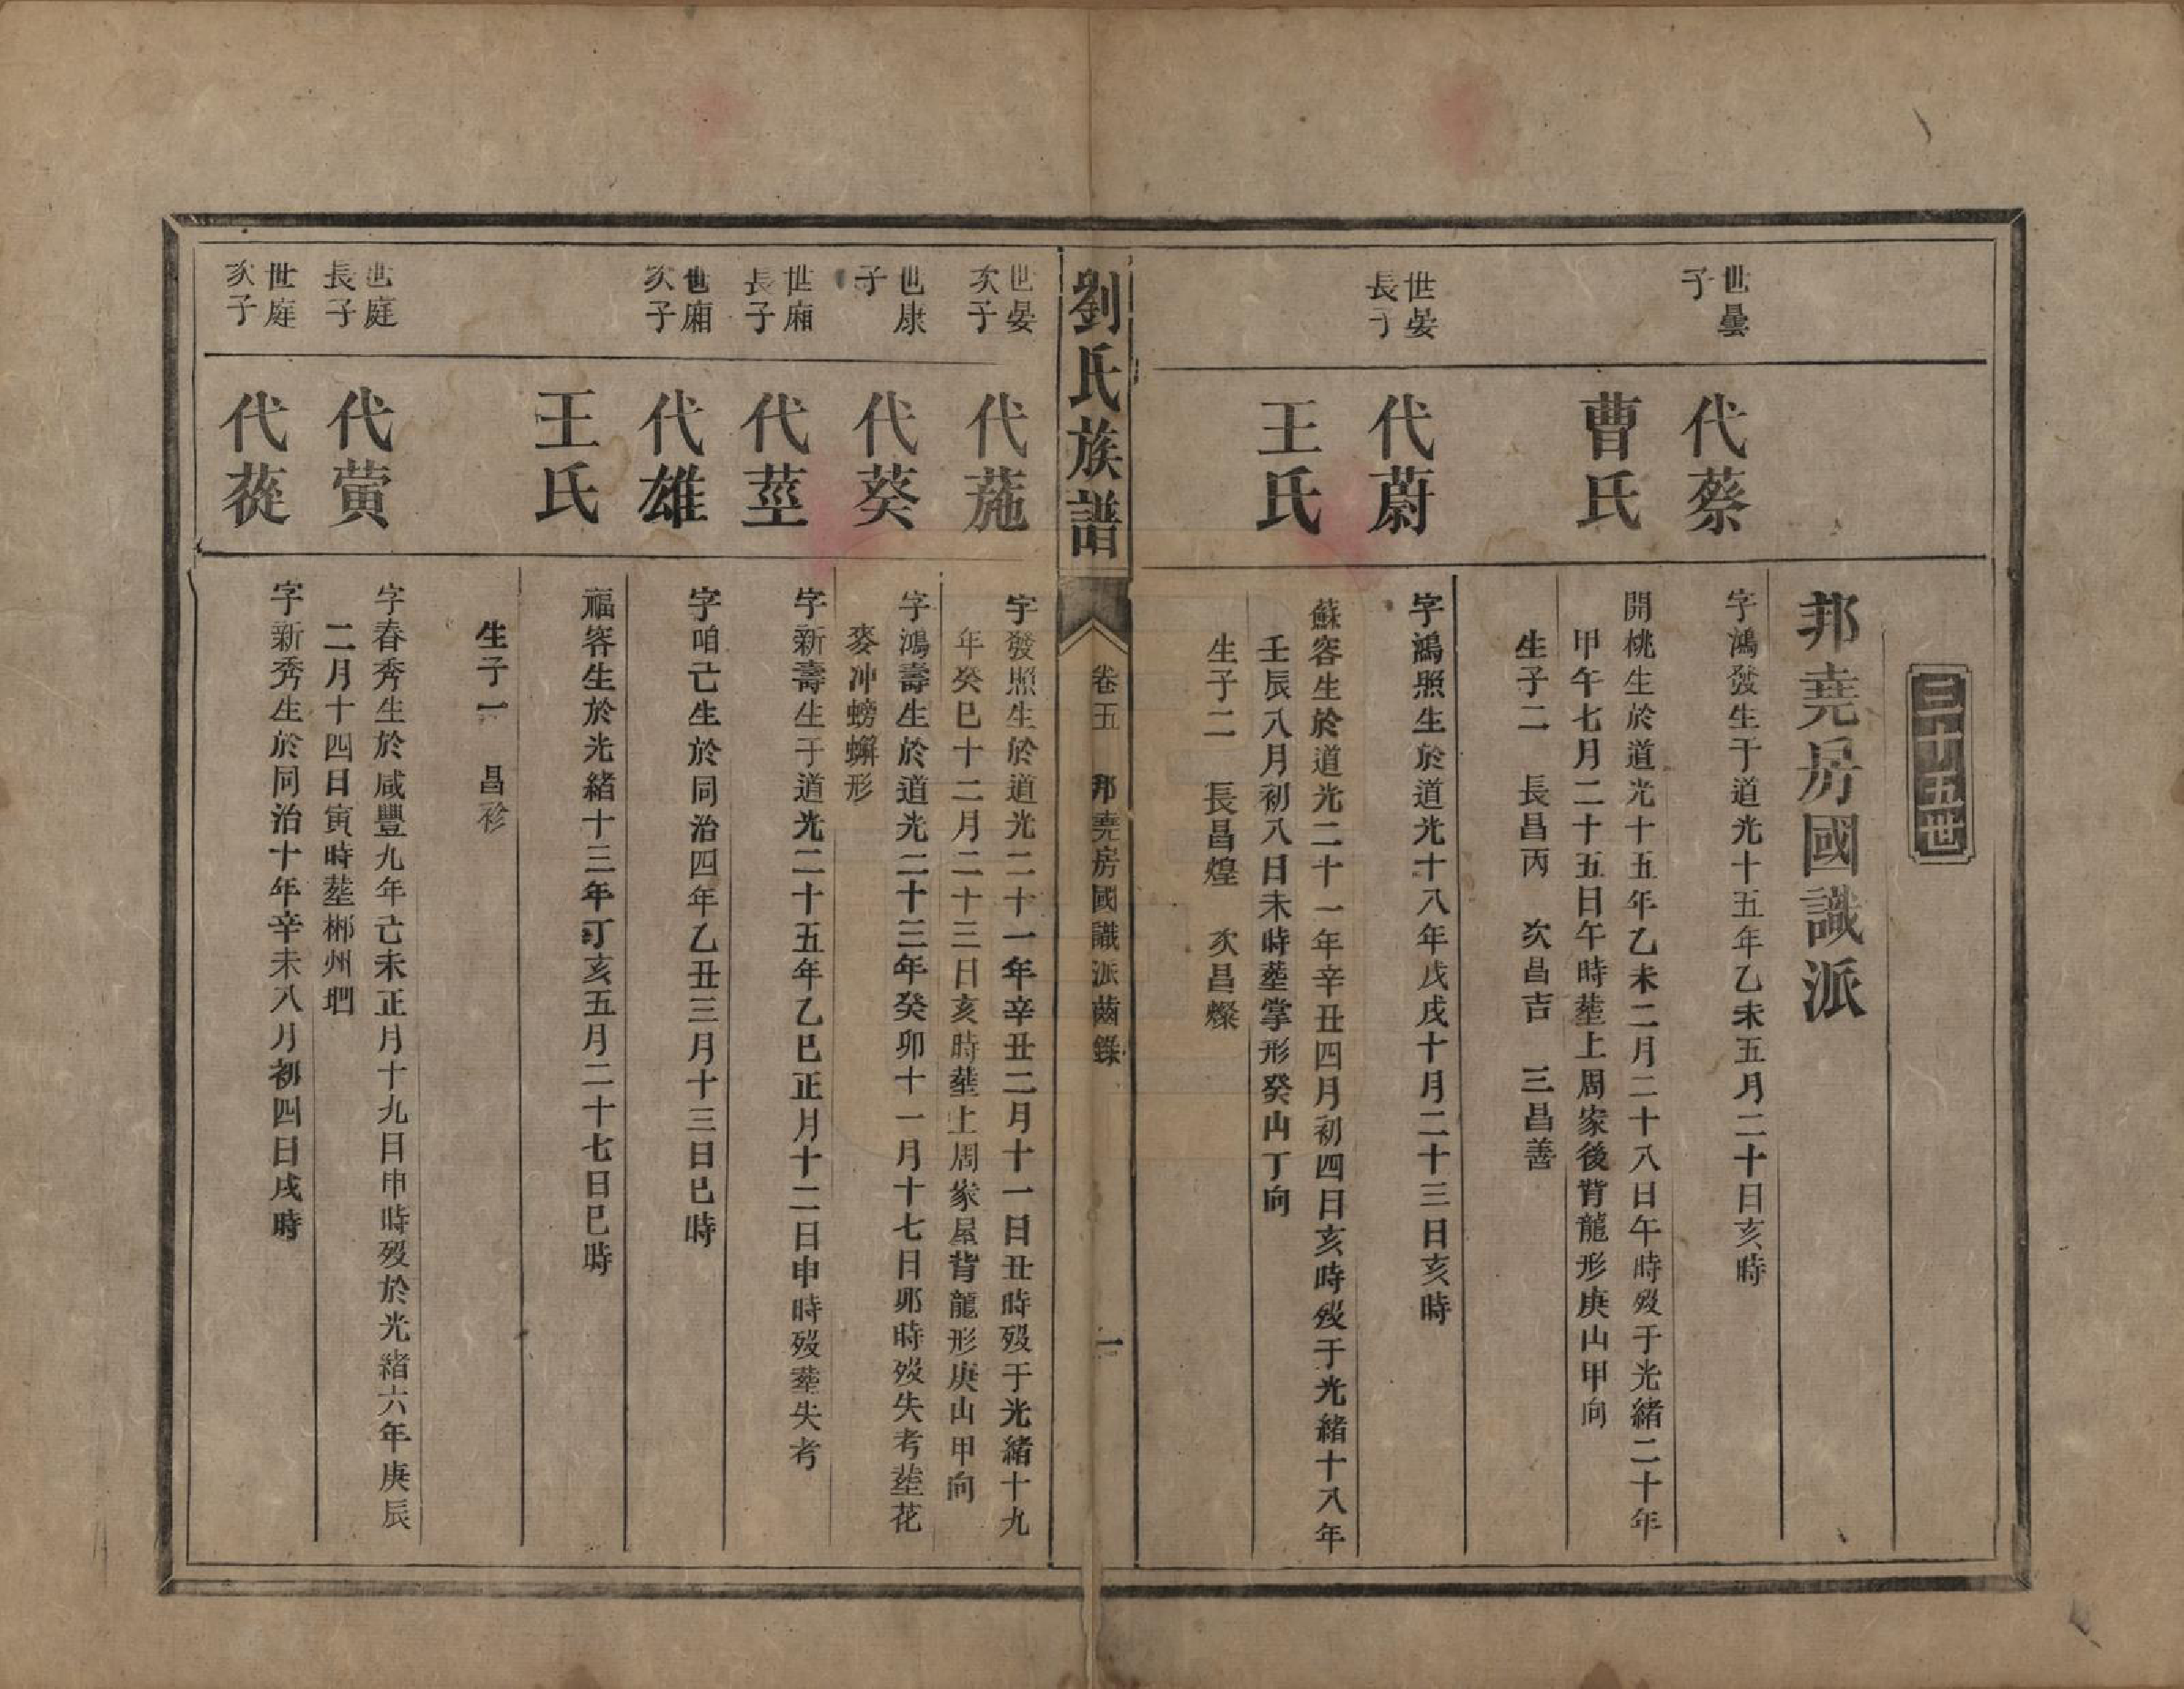 三十五世
邦堯房國識派
世曇
子
代蔡
字鴻發生于道光十五年乙未五月二十日亥時
曹氏
開桃生於道光十五年乙未二月二十八日午時歿于光緒二十年
甲午七月二十五日午時塟上周家後背龍形庚山甲向
生子二　長昌丙　次昌吉　三昌善
世晏
長子
代蔚
字鴻照生於道光十八年戊戌十月二十三日亥時
王氏
蘇容生於道光二十一年辛丑四月初四日亥時歿于光緒十八年
壬辰八月初八日未時塟掌形癸山丁向
生子二　長昌煌　次昌燦
劉氏族譜
卷五　邦堯房國識派齒錄
一
世晏
次子
代葹
字發照生於道光二十一年辛丑二月十一日丑時歿于光緒十九
年癸巳十二月二十三日亥時塟上周家屋背龍形庚山甲向
世康
子
代葵
字鴻壽生於道光二十三年癸卯十一月十七日卯時歿失考塟花
麥冲螃蠏形
世廂
長子
代莖
字新壽生于道光二十五年乙巳正月十二日申時歿塟失考
世廂
次子
代雄
字咱己生於同治四年乙丑三月十三日巳時
王氏
福容生於光緒十三年丁亥五月二十七日巳時
生子一　昌衫
世庭
長子
代黃
字春秀生於咸豐九年己未正月十九日申時歿於光緒六年庚辰
二月十四日寅時塟郴州垇
世庭
次子
代蓰
字新秀生於同治十年辛未八月初四日戌時